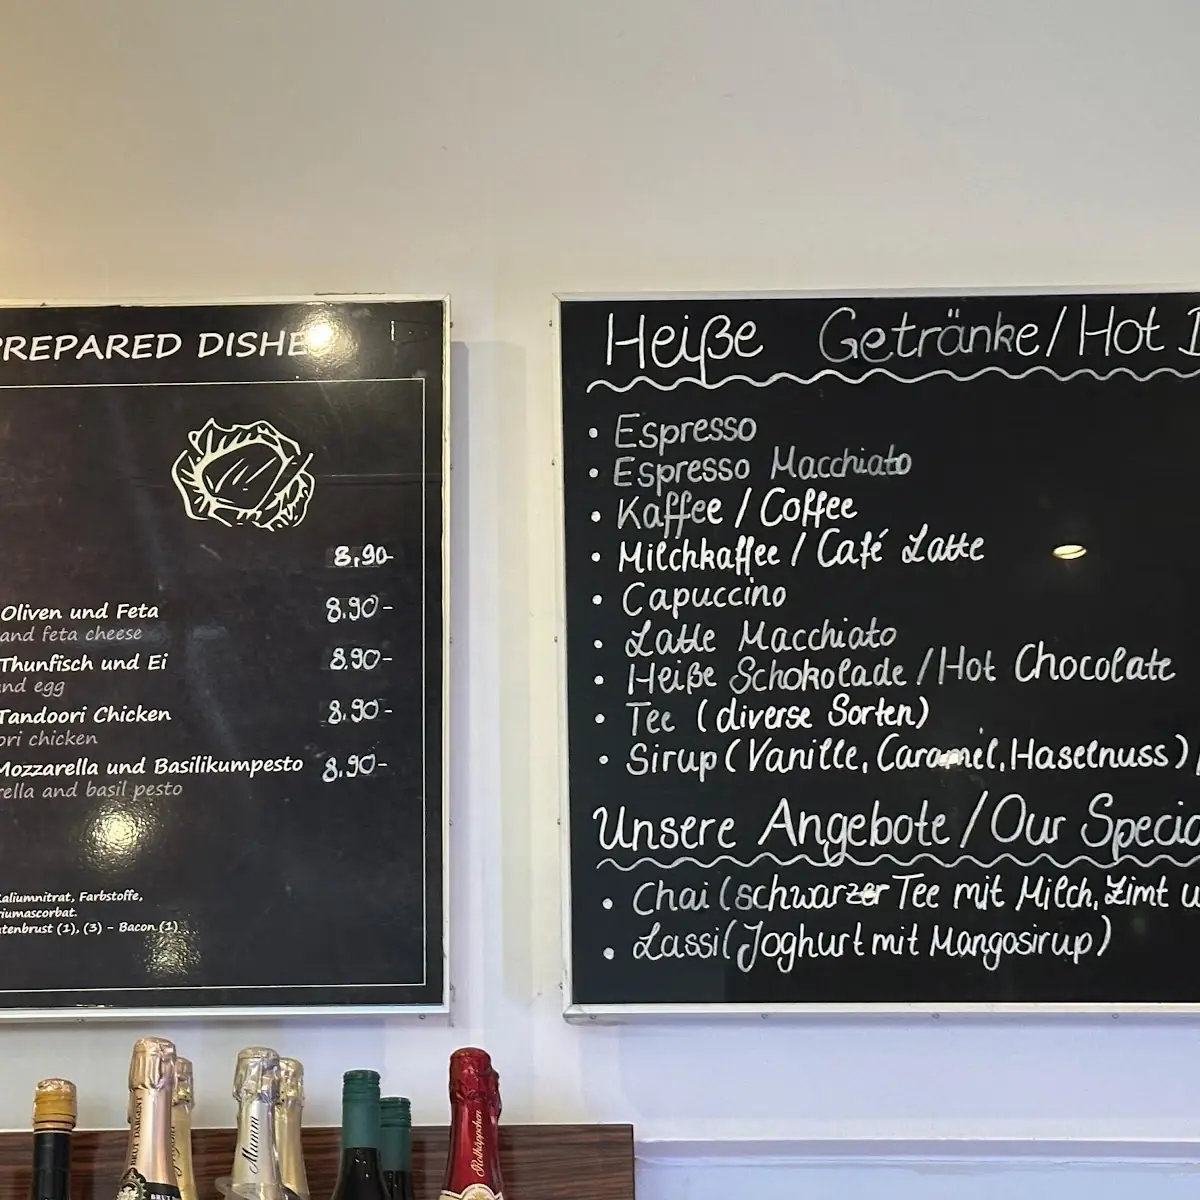 PREPARED DISHE
8.90-
Oliven und Feta 8.90-
and feta cheese
Thunfisch und Ei 8.90-
egg
Tandoori Chicken 8.90-
chicken
Mozzarella und Basilikumpesto 8.90-
and basil pesto
Farbstoffe,
(1), (3) - Bacon (1)
Heiße Getränke / Hot
• Espresso
• Espresso Macchiato
• Kaffee / Coffee
• Milchkaffee / Café Latte
• Capuccino
• Latte Macchiato
• Heiße Schokolade / Hot Chocolate
• Tee (diverse Sorten)
• Sirup (Vanille, Caramel, Haselnuss)
Unsere Angebote / Our Specia
• Chai (schwarzer Tee mit Milch, Zimt u
• Lassi (Joghurt mit Mangosirup)
BRUT DARGENT
BRUT
Mumm
Rotkäppchen